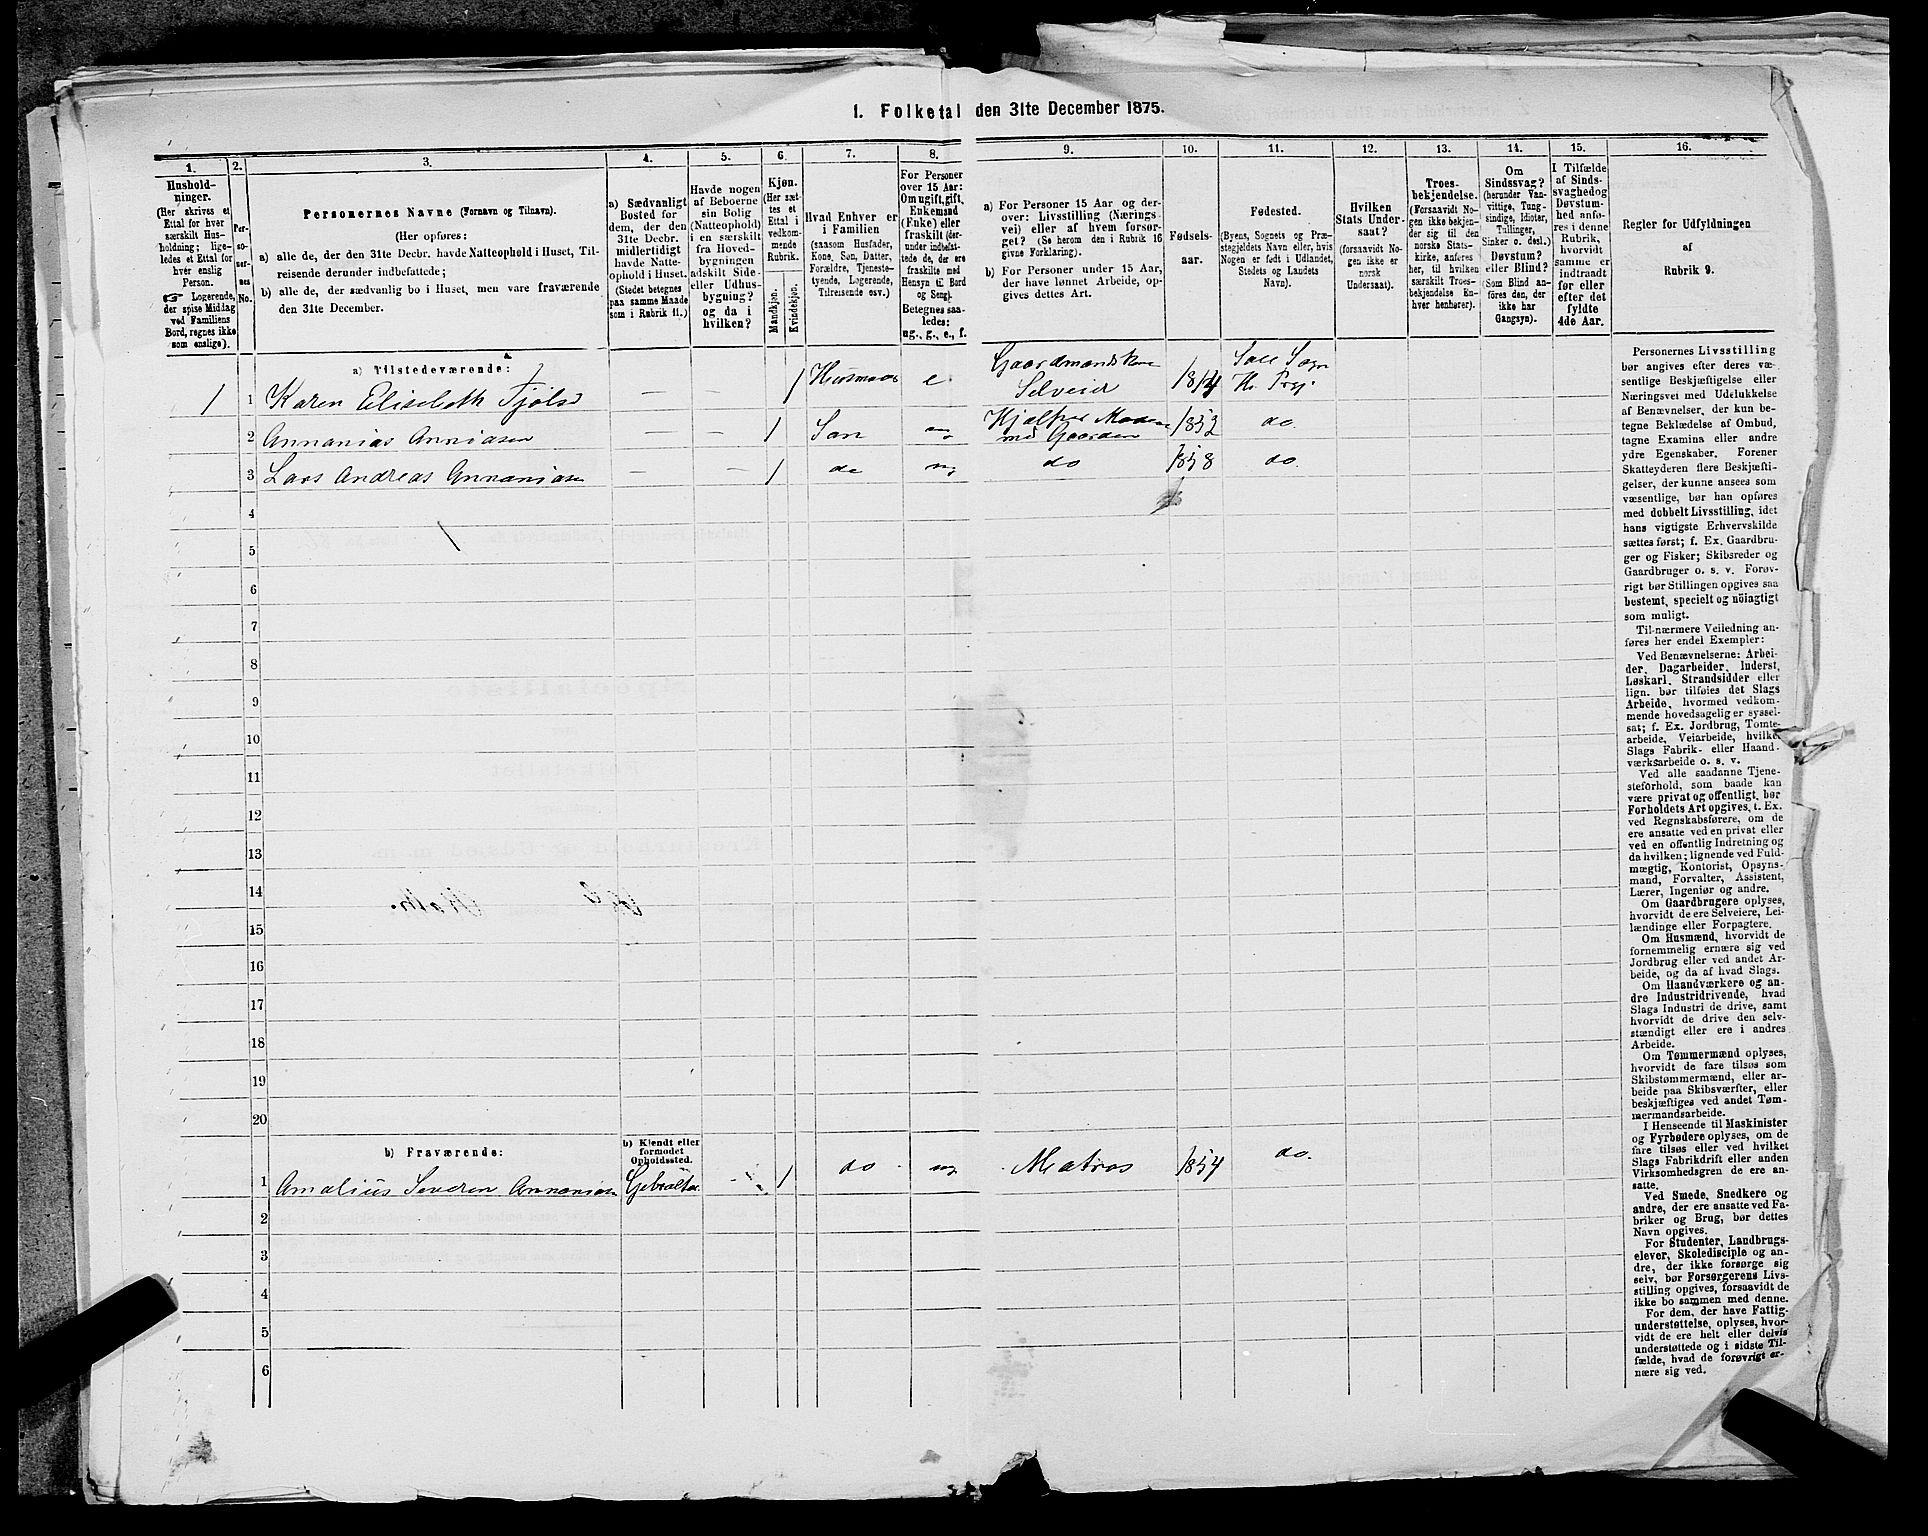 1. Folketal den 31te December 1875.
1.
2.
3.
4.
5.
6.
7.
8.
9.
10.
11.
12.
13.
14.
15.
16.
Hushold-
ninger.
(Her skrives et
Ettal for hver
særskilt Hus-
holdning; lige-
ledes et Ettal for
hver enslig
Person.
☞ Logerende,
der spise Middag
ved Familiens
Bord, regnes ikke
som enslige).
Per-
so-
ner-
nes
No.
Personernes Navne (Fornavn og Tilnavn).
(Her opføres:
a) alle de, der den 31te Decbr. havde Natteophold i Huset, Til-
reisende derunder indbefattede;
b) alle de, der sædvanlig bo i Huset, men vare fraværende
den 31te December.
a) Sædvanligt
Bosted for
dem, der den
31te Decbr.
midlertidigt
havde Natte-
ophold i Huset.
(Stedet betegnes
paa samme Maade
som i Rubrik 11.)
Havde nogen
af Beboerne
sin Bolig
(Natteophold)
i en særskilt
fra Hoved-
bygningen
adskilt Side-
eller Udhus-
bygning?
og da i
hvilken?
Kjøn.
(Her sæt-
tes et
Ettal i
vedkom-
mende
Rubrik.
Mandkjøn.
Kvindekjøn.
Hvad Enhver er
i Familien
(saasom Husfader,
Kone, Søn, Datter,
Forældre, Tjeneste-
tyende, Logerende,
Tilreisende osv.)
For Personer
over 15 Aar:
Om ugift, gift,
Enkemand
(Enke) eller
fraskilt (der-
under indbefat-
tede de, der ere
fraskilte med
Hensyn til Bord
og Seng).
Betegnes saa-
ledes:
ug., g., e., f.
a) For Personer 15 Aar og der-
over: Livsstilling (Nærings-
vei) eller af hvem forsør-
get? (Se herom den i Rubrik 16
givne Forklaring).
b) For Personer under 15 Aar,
der have lønnet Arbeide, op-
gives dettes Art.
Fødsels-
aar.
Fødested.
(Byens, Sognets og Præ-
stegjeldets Navn eller, hvis
Nogen er født i Udlandet,
Stedets og Landets
Navn).
Hvilken
Stats Under-
saat?
(forsaavidt No-
gen ikke er
norsk
Undersaat).
Troes-
bekjendelse.
(Forsaavidt No-
gen ikke bekjen-
der sig til den
norske Stats-
kirke, anføres
her, til hvilken
særskilt Troes-
bekjendelse En-
hver henhører).
Om
Sindssvag?
(herunder Van-
vittige, Tung-
sindige, Idioter,
Tullinger,
Sinker o. desl.)
Døvstum?
eller Blind?
(Som Blind an-
føres den, der
ikke har
Gangsyn).
I Tilfælde
af Sinds-
svaghed og
Døvstum-
hed anfø-
res i denne
Rubrik,
hvorvidt
samme er
indtraadt
før eller
efter det
fyldte
4de Aar.
Regler for Udfyldningen
af
Rubrik 9.
a) Tilstedeværende:
1 1 Karen Elisebeth — — 1 e Selveier
2 Annanias — — 1 Søn ug med Gaarden 1852 do.
3 Lars Andreas Annaniasen — — 1 do ug do 1858 do.
4
5
6
7
8
9
10
11
12
13
14
15
16
17
18
19
20
b) Fraværende:
b) Kjendt eller
formodet
Opholdssted.
1 Amalius Severin Annaniasen Gebralter 1 do ug Matros 1854 do.
2
3
4
5
6
Personernes Livsstilling
bør angives efter deres væ-
sentlige Beskjæftigelse eller
Næringsvei med Udelukkelse
af Benævnelser, der kun be-
tegne Beklædelse af Ombud,
tagne Examina eller andre
ydre Egenskaber. Forener
Skatteyderen flere Beskjæfti-
gelser, der kunne ansees som
væsentlige, bør han opføres
med dobbelt Livsstilling, idet
hans vigtigste Erhvervskilde
sættes først; f. Ex. Gaardbru-
ger og Fisker; Skibsreder og
Gaardbruger o. s. v. Forøv-
rigt bør Stillingen opgives saa
bestemt, specielt og nöiagtigt
som muligt.
Til nærmere Veiledning an-
føres her endel Exempler:
Ved Benævnelserne: Arbei-
der, Dagarbeider, Inderst,
Løskarl, Strandsidder eller
lign. bør tilføies det Slags
Arbeide, hvormed vedkom-
mende hovedsagelig er syssel-
sat; f. Ex. Jordbrug, Tomte-
arbeide, Veiarbeide, hvilket
Slags Fabrik- eller Haand-
værksarbeide o. s. v.
Ved alle saadanne Tjene-
steforhold, som baade kan
være privat og offentligt, bør
Forholdets Art opgives, t. Ex.
ved Regnskabsførere, om de
ere ansatte ved en privat eller
ved en offentlig Indretning og
da hvilken; lignende ved Fuld-
mægtig, Kontorist, Opsyns-
mand, Forvalter, Assistent,
Lærer, Ingeniør og andre.
Om Gaardbrugere oplyses,
hvorvidt de ere Selveiere, Lei-
lændinge eller Forpagtere.
Om Husmænd, hvorvidt de
fornemmelig ernære sig ved
Jordbrug eller ved andet Ar-
beide, og da af hvad Slags.
Om Haandværkere og an-
dre Industridrivende, hvad
Slags Industri de drive, samt
hvorvidt de drive den selv-
stændigt eller ere i andres
Arbeide.
Om Tømmermænd oplyses,
hvorvidt de fare tilsøs som
Skibstømmermænd, eller ar-
beide paa Skibsværfter, eller
beskjæftiges ved andet Tøm-
mermandsarbeide.
I Henseende til Maskinister
og Fyrbødere oplyses, om de
fare tilsøs eller ved hvilket
Slags Fabrikdrift eller anden
Virksomhedsgren de ere an-
satte.
Ved Smede, Snedkere og
andre, der ere ansatte ved Fa-
briker og Brug, bør dettes
Navn opgives.
For Studenter, Landbrugs-
elever, Skoledisciple og an-
dre, der ikke forsørge sig
selv, bør Forsørgerens Livs-
stilling opgives, forsaavidt de
ikke bo sammen med denne.
For dem, der have Fattig-
understøttelse, oplyses, hvor-
vidt de ere helt eller delvis
understøttede og i sidste Til-
fælde, hvad de forøvrigt er-
nære sig ved.